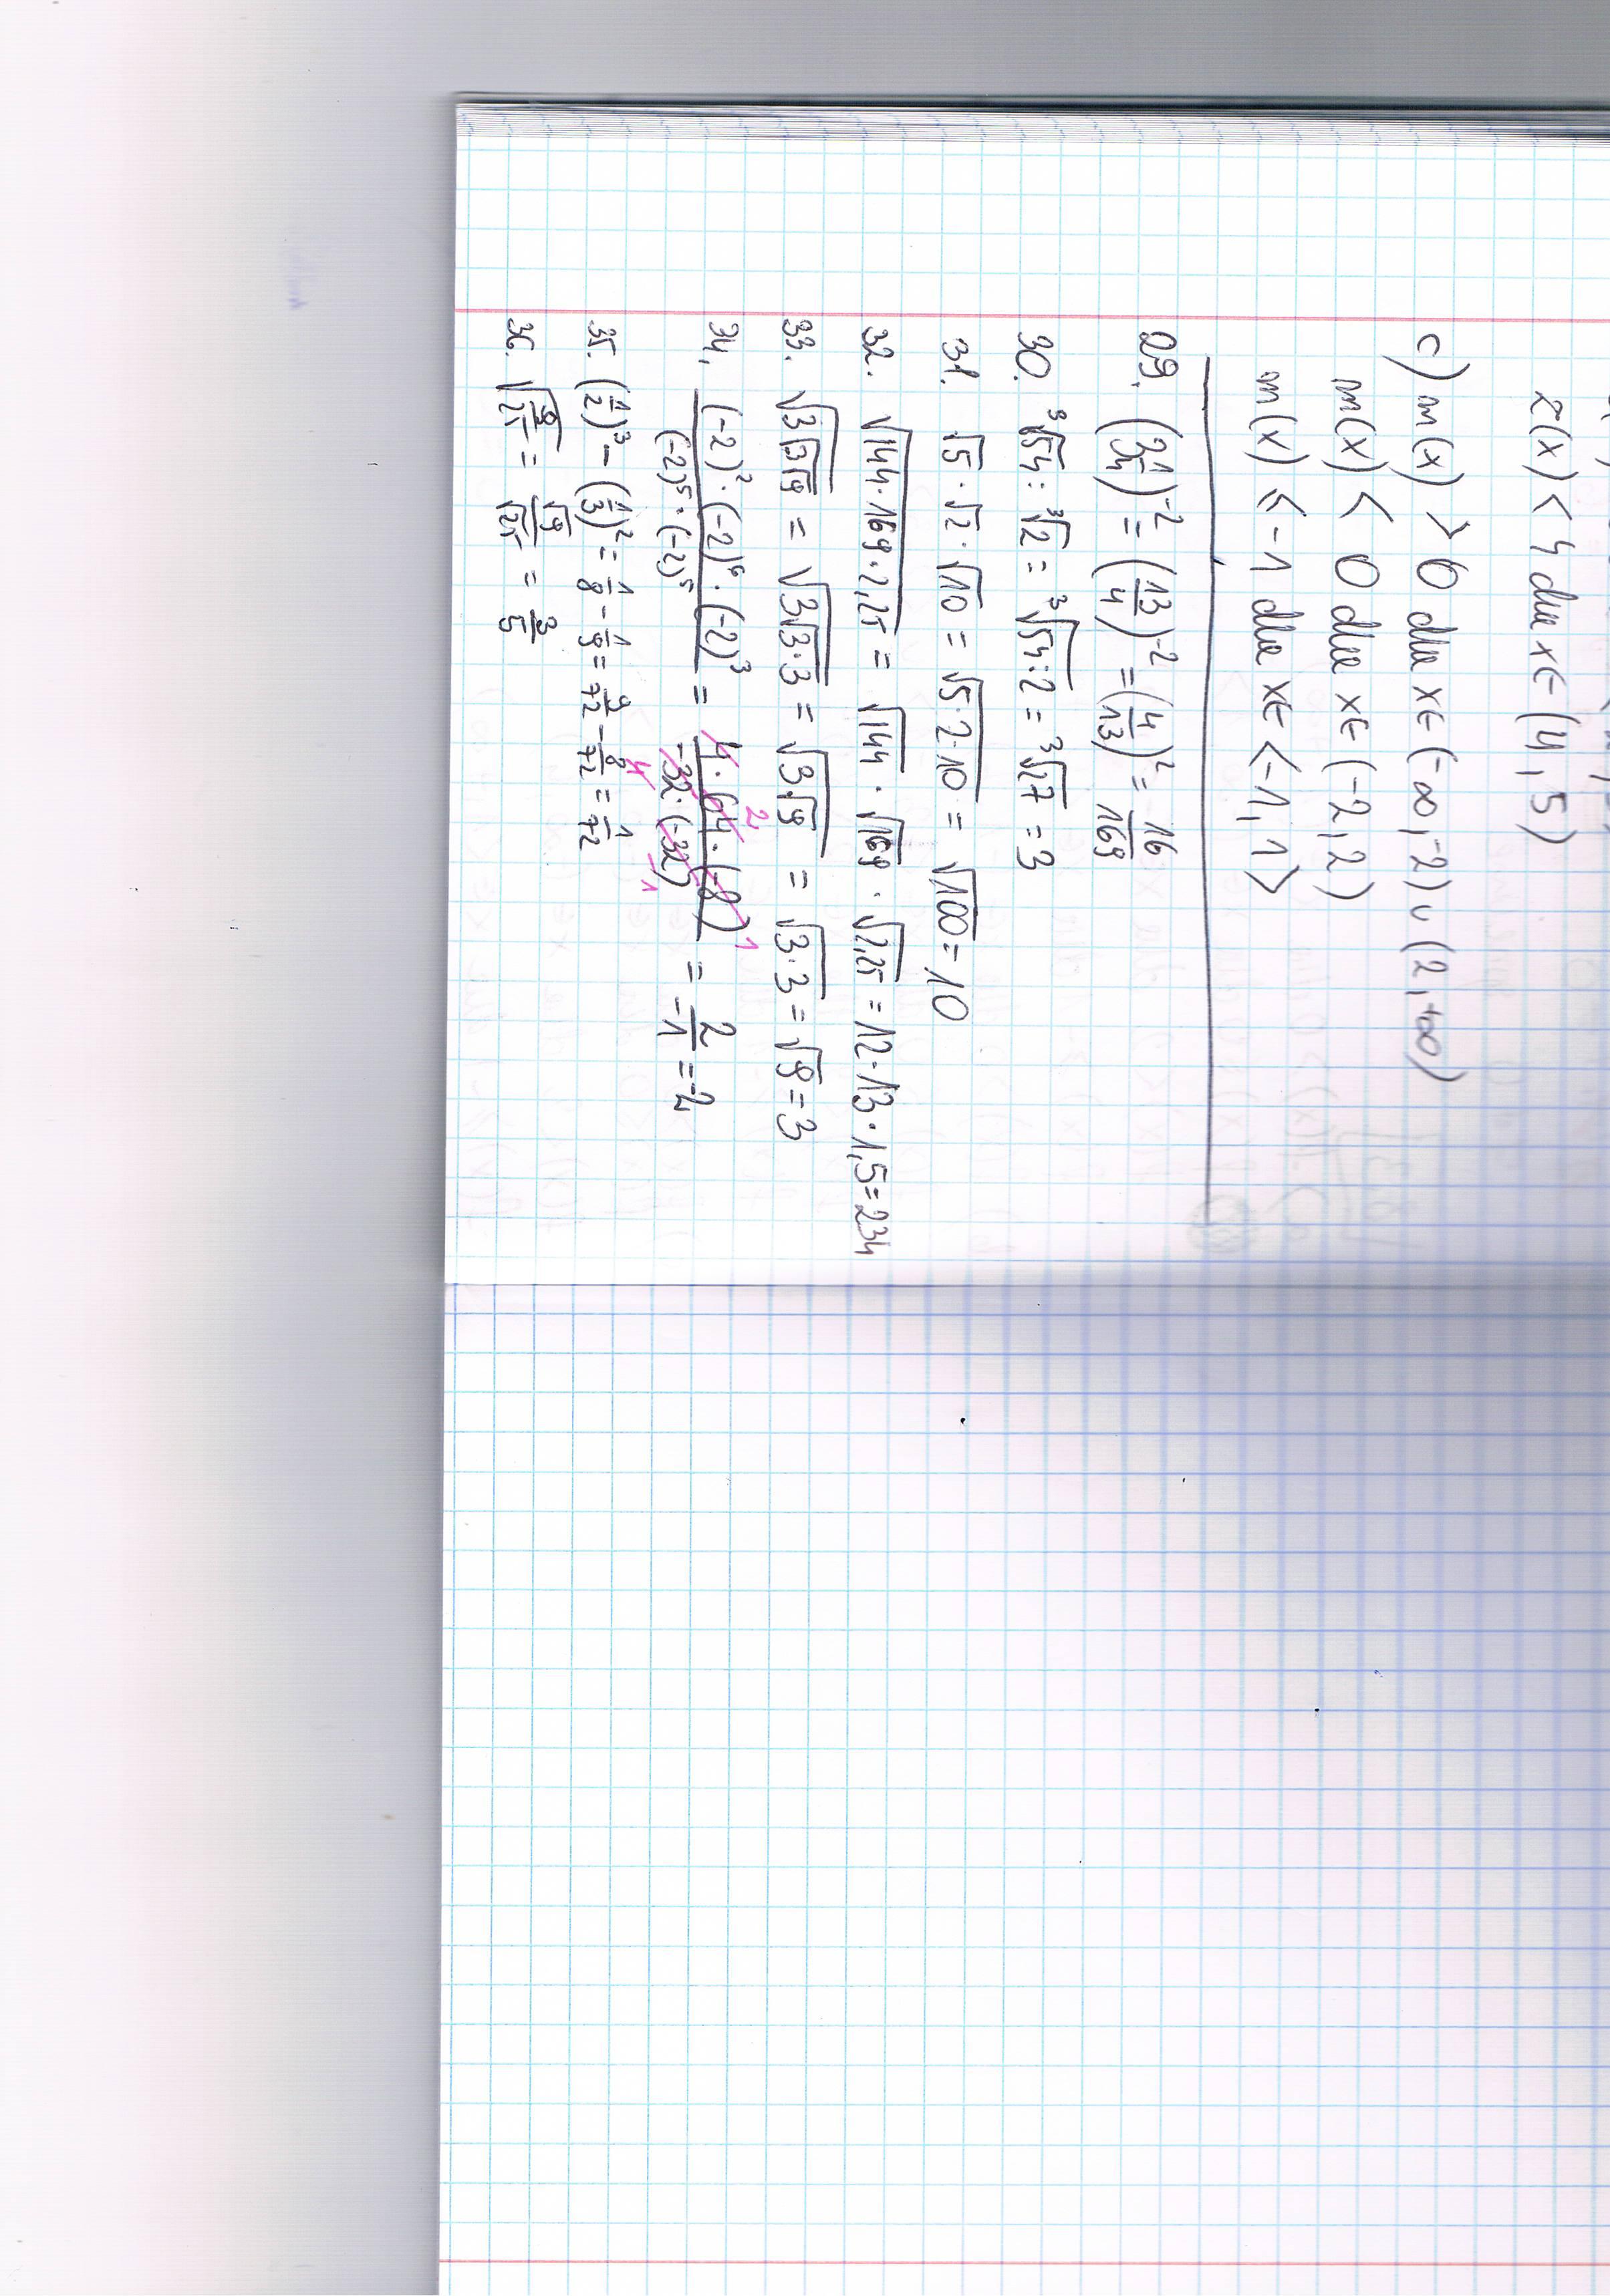 z(x) < 4 dla x∈(4,5)
c) m(x) > 0 dla x∈(-∞,-2)∪(2,+∞)
m(x) < 0 dla x∈(-2,2)
m(x) ≤ -1 dla x∈<-1,1>
29. (3 1/4)^-2 = (13/4)^-2 = (4/13)^2 = 16/169
30. ³√54 : ³√2 = ³√54:2 = ³√27 = 3
31. √5 · √2 · √10 = √5·2·10 = √100 = 10
32. √144·169·2,25 = √144 · √169 · √2,25 = 12·13·1,5=234
33. √3√3√9 = √3√3·3 = √3√9 = √3·3 = √9 = 3
34. (-2)^2·(-2)^6·(-2)^3 / (-2)^5·(-2)^5 = 4·64·(-8) / -32·(-32) = 2/-1 = -2
35. (1/2)^3 - (1/3)^2 = 1/8 - 1/9 = 9/72 - 8/72 = 1/72
36. √9/25 = √9/√25 = 3/5